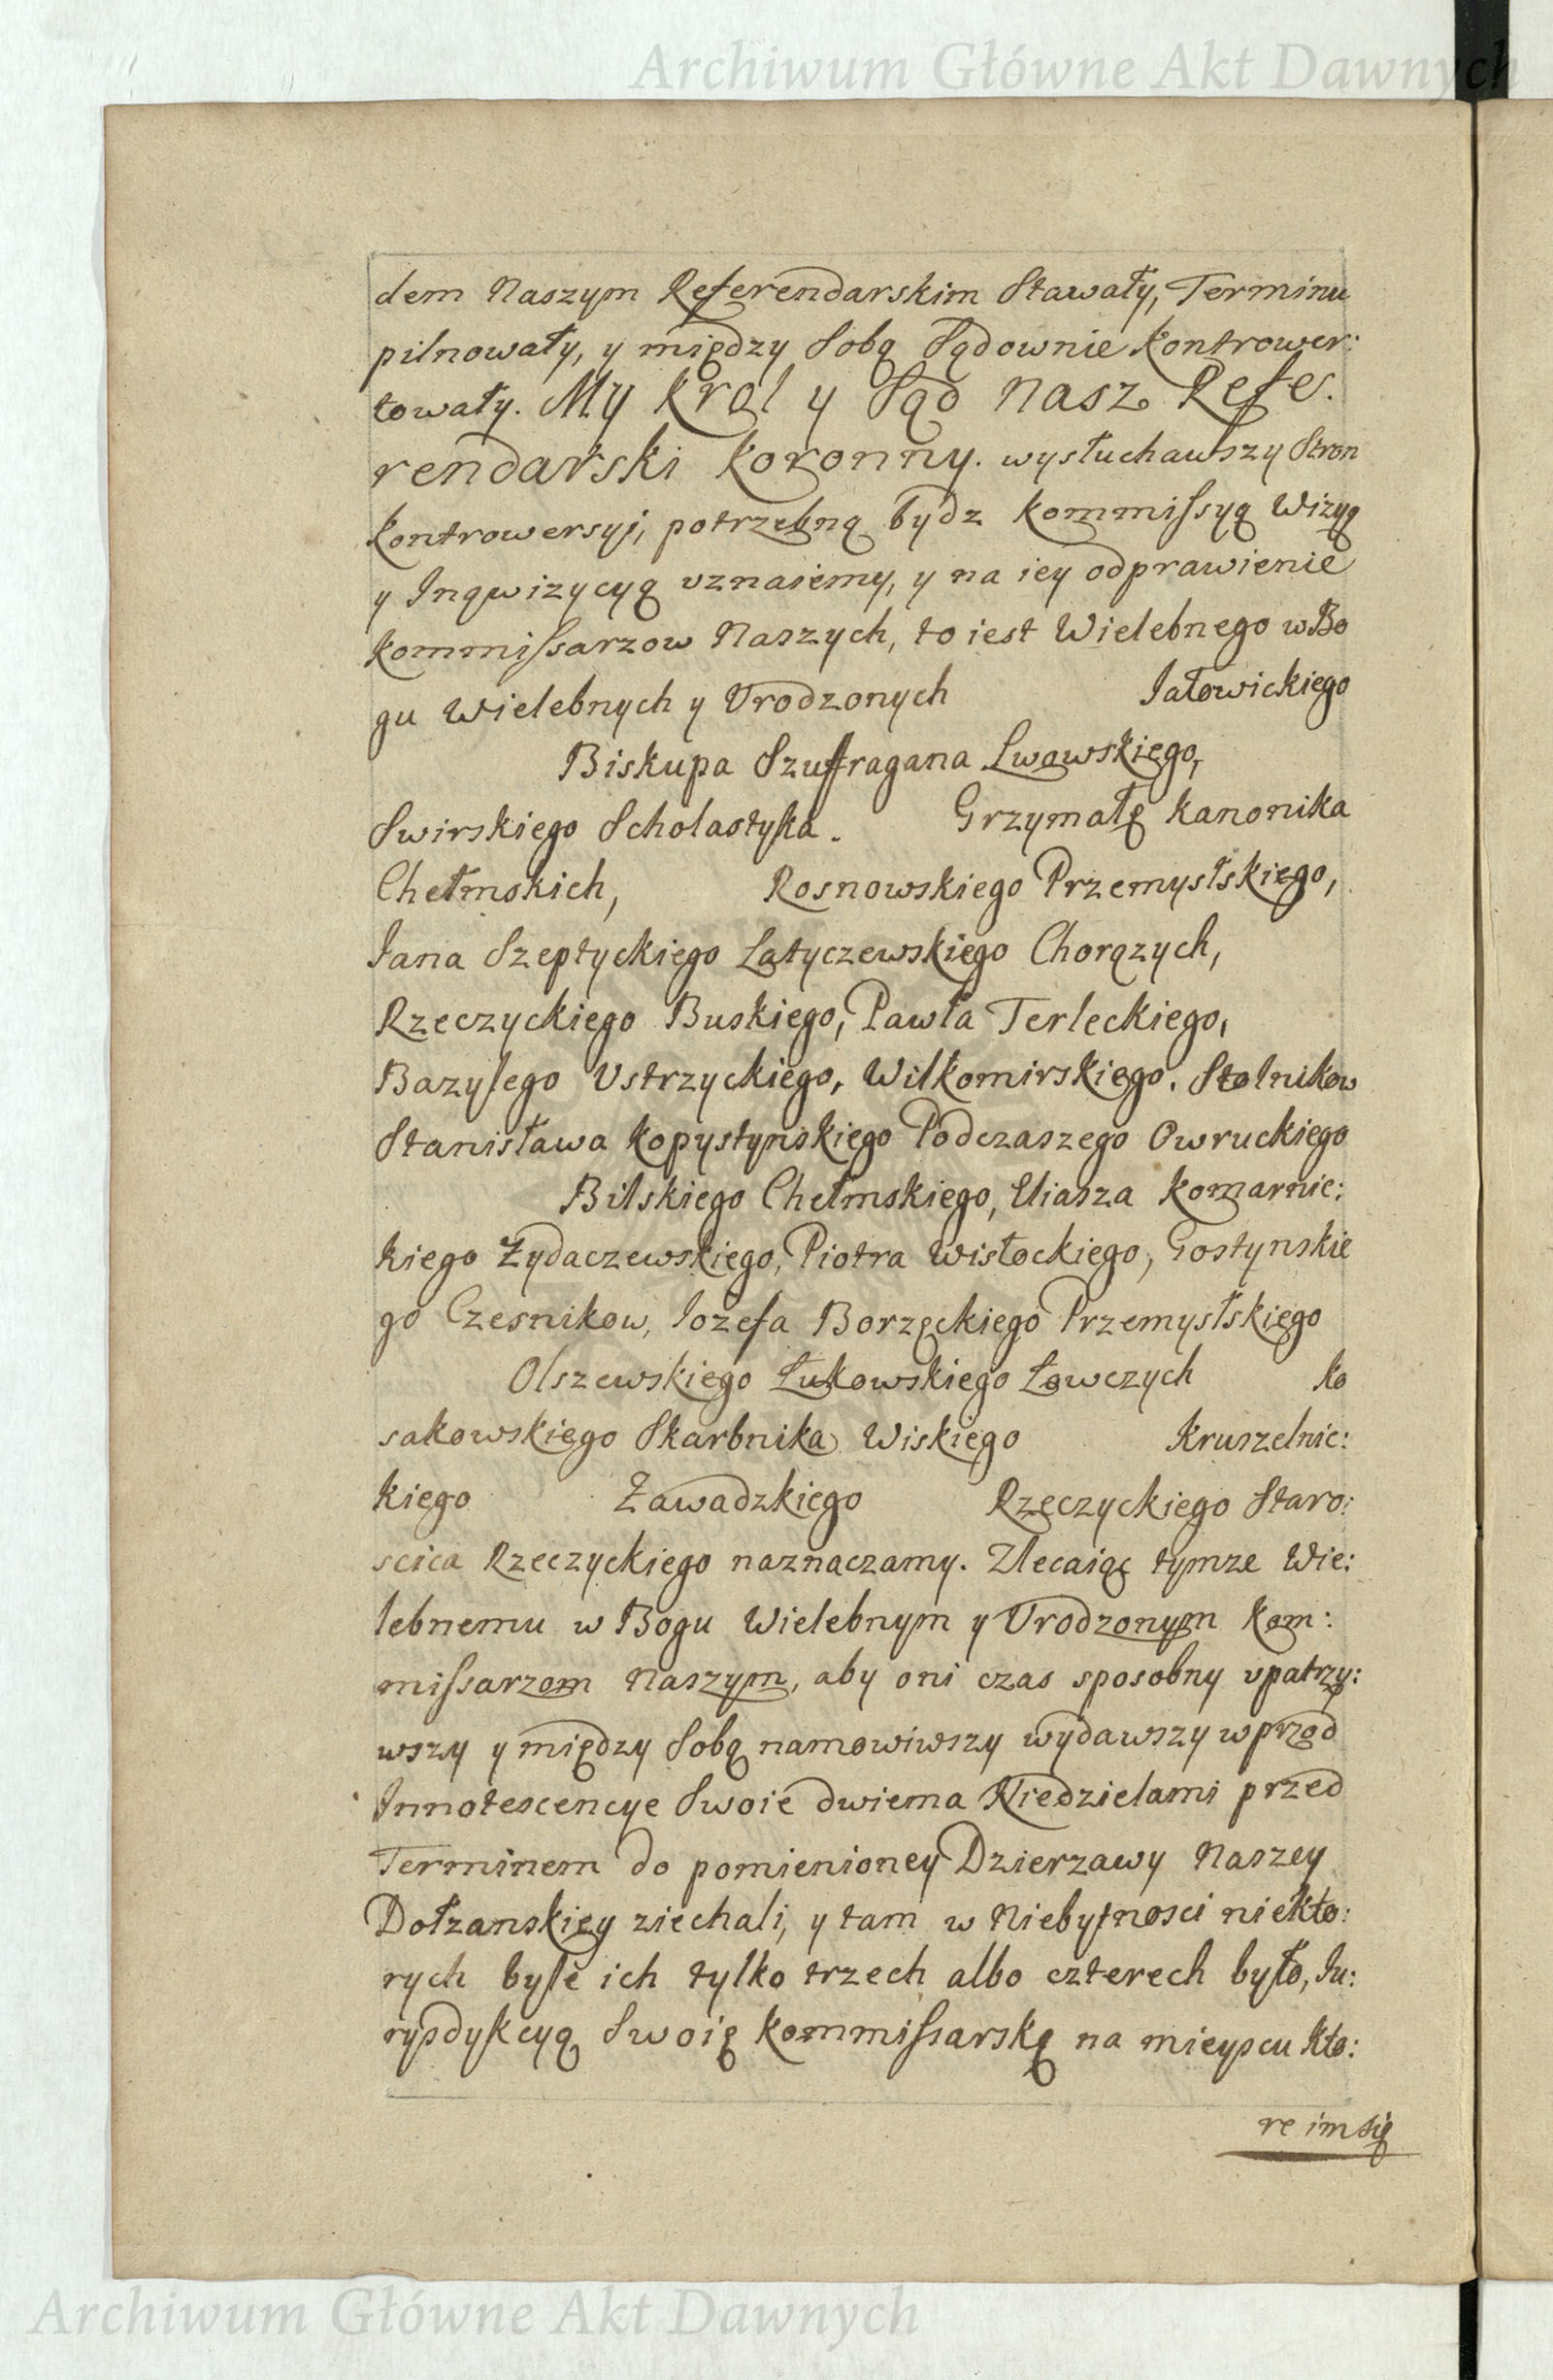 Archiwum Główne Akt Dawnych
dem Naszym Referendarskim Stawały, Terminu
pilnowały, y między Sobą Sądownie Kontrower:
towały. My Krol y Sąd Nasz Refe.
rendarski Koronny. wysłuchawszy Stron
Kontrowersyi, potrzebną bydz Kommissyą Wizyą
y Inqwizycyą vznaiemy, y na iey odprawienie
Kommissarzow Naszych, to iest Wielebnego w Bo
gu Wielebnych y Vrodzonych Jałowickiego
Biskupa Szuffragana Lwowskiego,
Swirskiego Scholastyka. Grzymałę Kanonika
Chełmskich, Rosnowskiego Przemysłskiego,
Jana Szeptyckiego Latyczewskiego Chorązych,
Rzeczyckiego Buskiego, Pawła Terleckiego,
Bazylego Vstrzyckiego, Wilkomirskiego. Stolnikow
Stanisława Kopystynskiego Podczaszego Owruckiego
Bilskiego Chełmskiego, Eliasza Komarnic:
kiego Zydaczewskiego, Piotra Wisłockiego, Gostynskie
go Czesnikow, Jozefa Borzęckiego Przemysłskiego
Olszewskiego Łukowskiego Łowczych Ko
sakowskiego Skarbnika Wiskiego Kruszelnic:
kiego Zawadzkiego Rzeczyckiego Staro:
scica Rzeczyckiego naznaczamy. Zlecaiąc tymze Wie:
lebnemu w Bogu Wielebnym y Vrodzonym Kom:
missarzom Naszym, aby oni czas sposobny vpatrzy:
wszy y między Sobą namowiwszy wydawszy wprzod
Innotescencye Swoie dwiema Niedzielami przed
Terminem do pomienioney Dzierzawy Naszey
Dołzanskiey ziechali, y tam w Niebytnosci niekto:
rych byle ich tylko trzech albo czterech było, Ju:
rysdykcyą Swoię Kommissarską na mieyscu kto:
re im się
Archiwum Główne Akt Dawnych